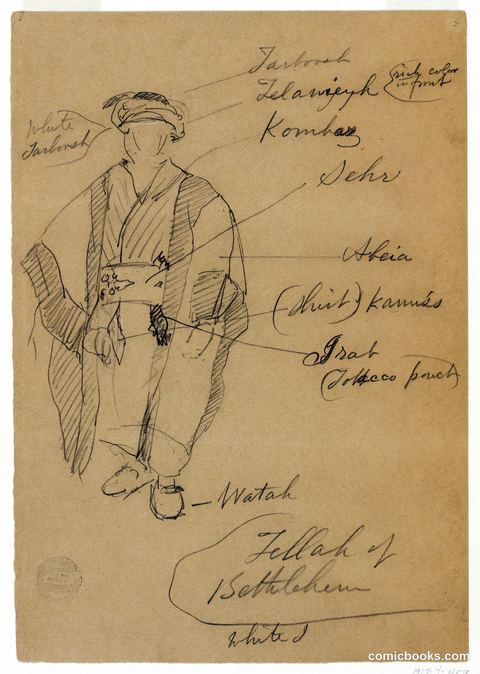 Tarboosh
Telawiyeh
(rich color
in front
Kombaz
White
Tarboosh
Sehr
Abeia
(Shirt) Kamiss
Grab
(Tobacco pouch)
Watah
Fellah of
Bethlehem
White
comicbooks.com